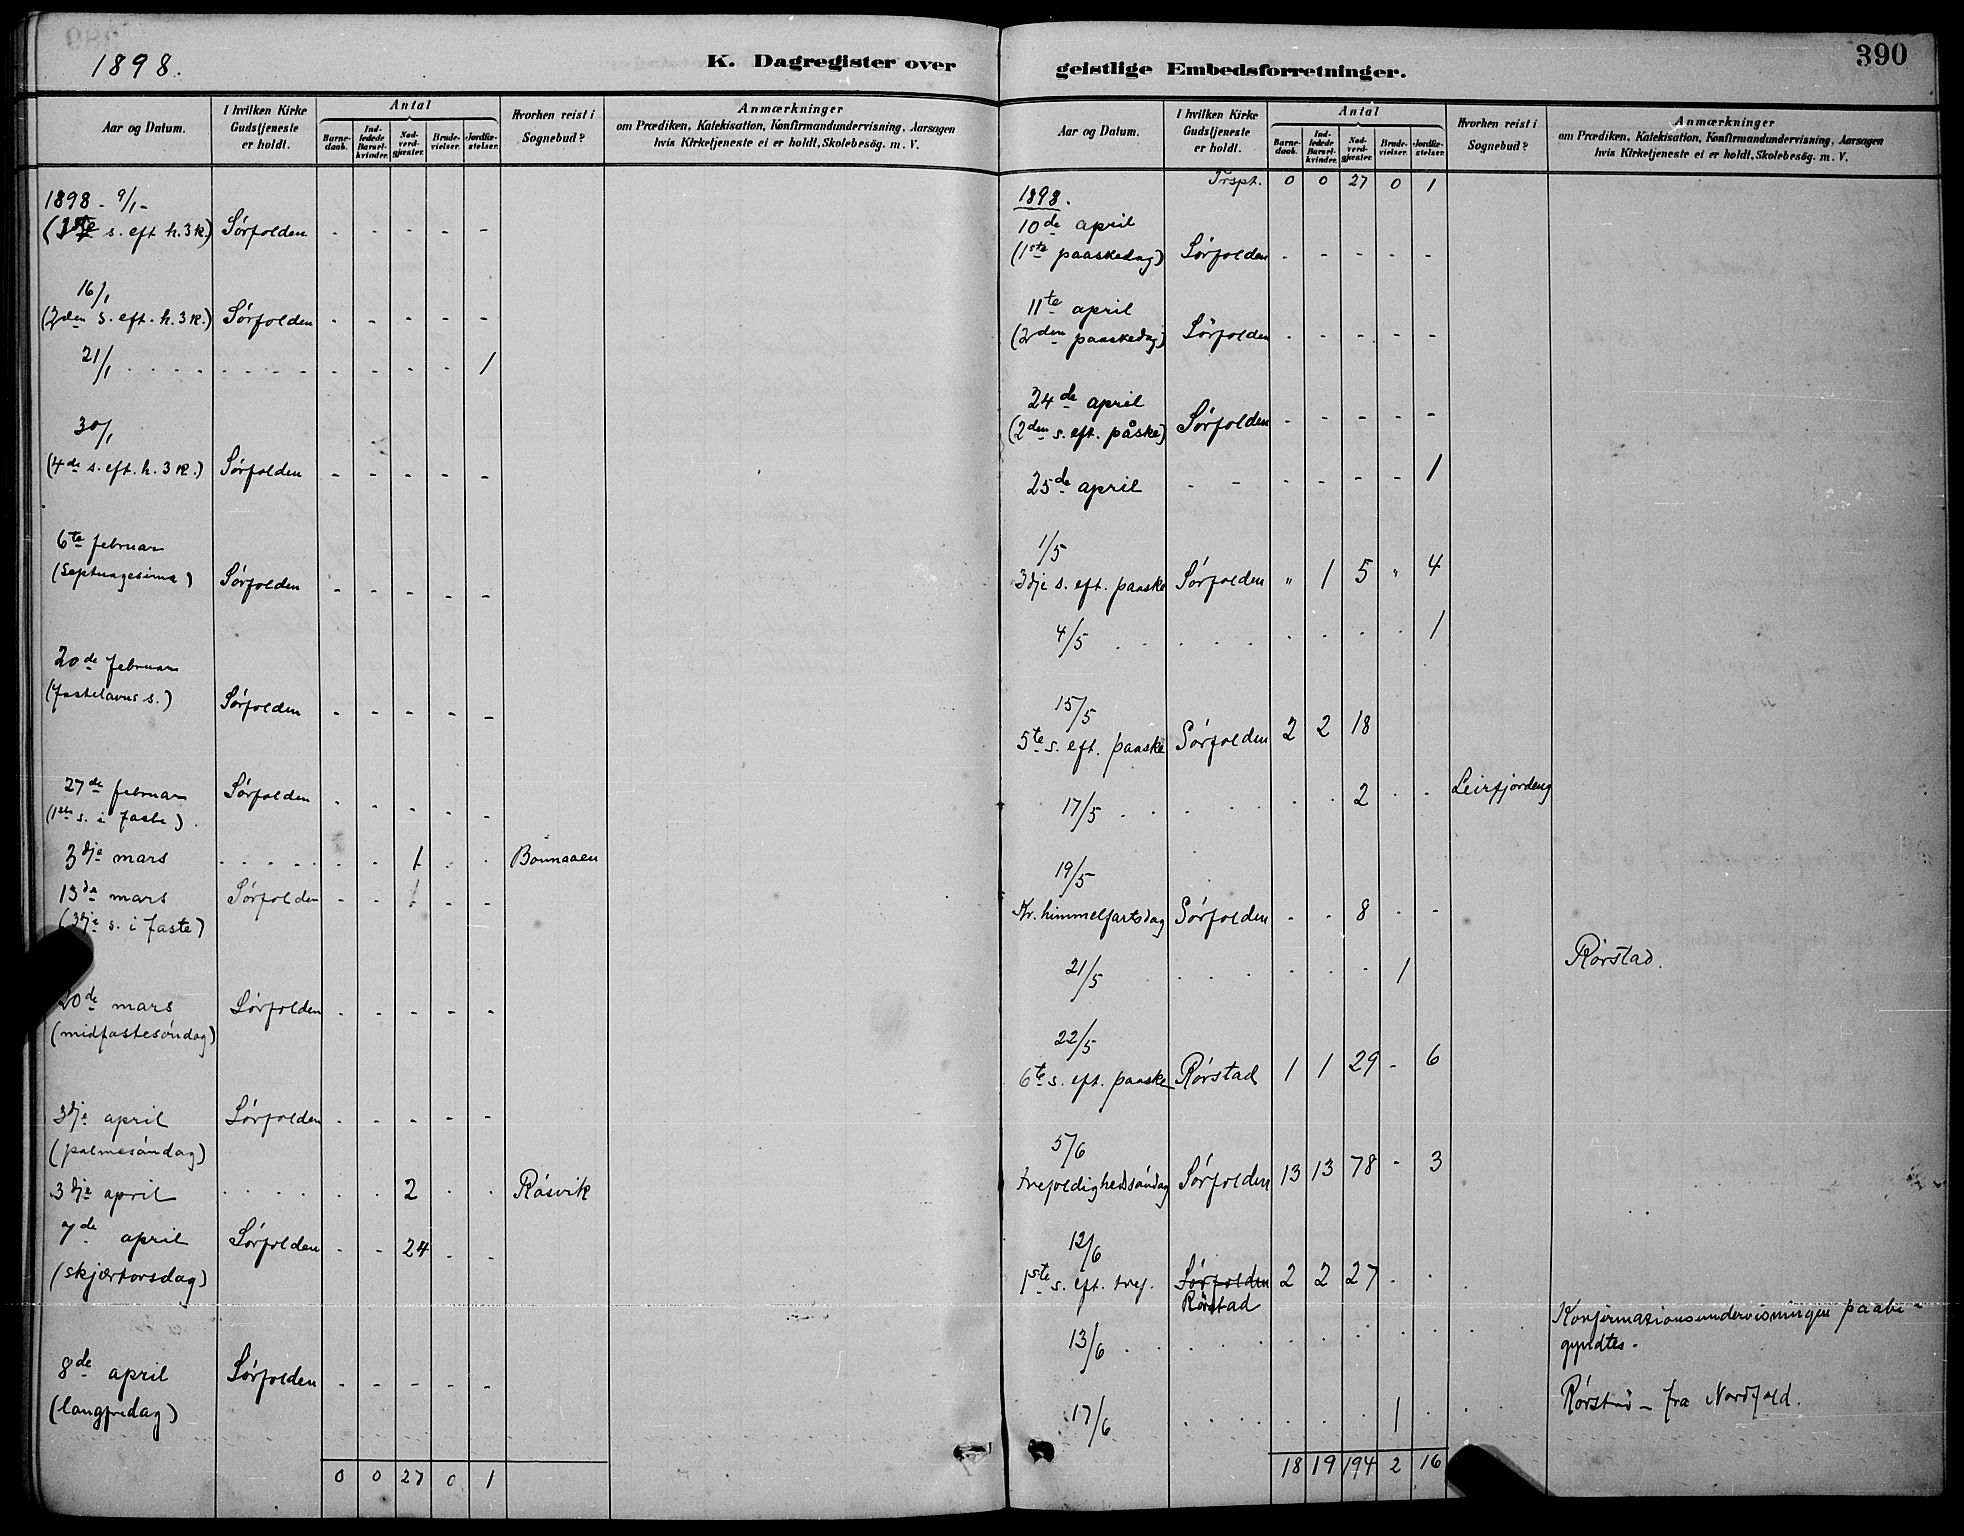 1898.
K. Dagregister over
Aar og Datum.
I hvilken Kirke Gudstjeneste er holdt.
Antal
Barne-daab.
Ind-ledede Barsel-kvinder.
Nad-verd-gjæster.
Brude-vielser.
Jordfæ-stelser.
Hvorhen reist i Sognebud?
Anmærkninger
om Prædiken, Katekisation, Konfirmandundervisning, Aarsagen
hvis Kirketjeneste ei er holdt, Skolebesög. m. V.
1898 - 9/1 -
(1ste s. eft h. 3 k.) Sørfolden - - - - -
16/1
(2den s. eft. h. 3 k.) Sørfolden - - - - -
21/1 . . . . . . . . . . . . . 1
30/1
(4de s. eft. h. 3 k.) Sørfolden - - - - -
6te februar
(Septuagesima) Sørfolden - - - - -
20de februar
(fastelavns s.) Sørfolden - - - - -
27de februar Sørfolden - - - - -
(1ste s. i faste).
3dje mars . . . . . . . 1 . . Bonnaaen
13de mars Sørfolden - - 1 - -
(3dje s. i faste)
20de mars Sørfolden - - - - -
(midfastesøndag)
3dje april Sørfolden - - - - -
(palmesøndag)
3dje april . . . . . . 2 . . Røsvik
7de april Sørfolden - - 24 - -
(skjærtorsdag)
8de april Sørfolden - - - - -
(langfredag)
0 0 27 0 1
390
geistlige Embedsforretninger.
Aar og Datum.
I hvilken Kirke Gudstjeneste er holdt.
Antal
Barne-daab.
Ind-ledede Barsel-kvinder.
Nad-verd-gjæster.
Brude-vielser.
Jordfæ-stelser.
Hvorhen reist i Sognebud?
Anmærkninger
om Prædiken, Katekisation, Konfirmandundervisning, Aarsagen
hvis Kirketjeneste ei er holdt, Skolebesög. m. V.
Trspt. 0 0 27 0 1
1898.
10de april
(1ste paaskedag) Sørfolden - - - - -
11te april
(2den paaskedag) Sørfolden - - - - -
24de april
(2den s. eft. påske) Sørfolden - - - - -
25de april - - - - - - 1
1/5
3dje s. eft. paaske Sørfolden " 1 5 " 4
4/5 . . . . . . . . . 1
15/5
5te s. eft. paaske Sørfolden 2 2 18
17/5 . . . . . . . 2 . . Leirfjorden
19/5
Kr. himmelfartsdag Sørfolden - - 8 - -
21/5 . . . . . . . 1 Rørstad.
22/5
6te s. eft. paaske Rørstad 1 1 29 - 6
5/6
trefoldighedssøndag Sørfolden 13 13 78 - 3
12/6
1ste s. eft. tref. Sørfolden 2 2 27 - .
Rørstad
13/6 . . . . . . . . . . Konfirmazionsundervisningen paabe-
gyndtes.
17/6 . . . . . . . . 1 . . . Rørstad - fra Nordfold.
18 19 194 2 16